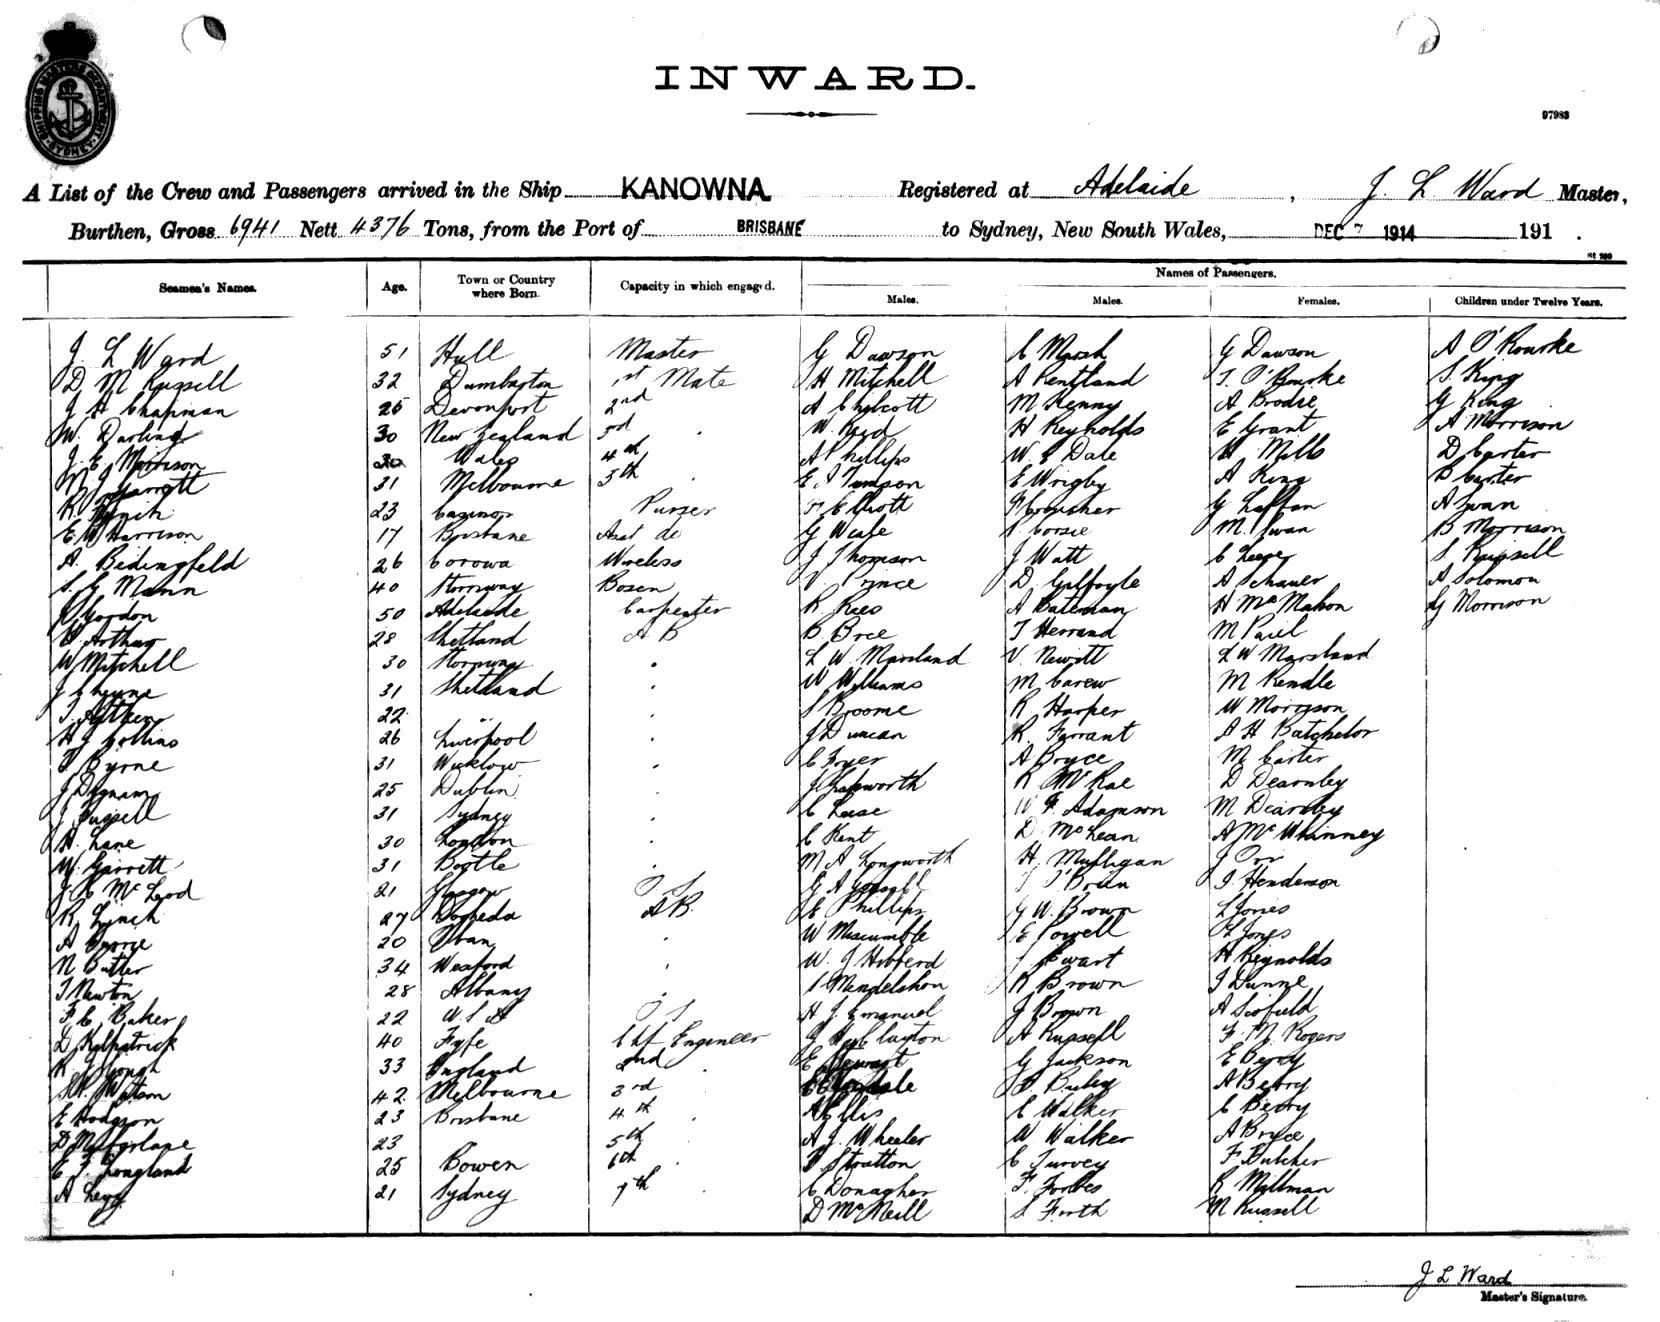 SHIPPING MASTERS DEPARTMENT SYDNEY
INWARD.
97983
A List of the Crew and Passengers arrived in the Ship KANOWNA Registered at Adelaide, J. L Ward Master,
Burthen, Gross 6941 Nett 4376 Tons, from the Port of BRISBANE to Sydney, New South Wales, DEC 7 1914 191 .
Names of Passengers.
Seamen's Names. Age. Town or Country where Born. Capacity in which engaged. Males. Males. Females. Children under Twelve Years.
J. L Ward 51 Hull Master G Dawson C Marsh G Dawson A O'Rourke
D M Russell 32 Dumbarton 1st Mate H Mitchell A Rentland T O'Rourke S King
J A Chapman 26 Devonport 2nd A Chibcott M Kenny A Brodie G King
W. Darling 30 New Zealand 3rd W. Kerd H Reynolds E Grant A Morrison
J. E Morrison 30 Wales 4th A Phillips W. E Dale Mills D Carter
Garrett 31 Melbourne 5th Timpson E Wrigby A King Carter
R Lynch 23 Casino Purser Elliott G Laffan A Swan
E W Harrison 17 Brisbane Asst do G Weale Corsie M. Swan B Morrison
A. Bidingfeld 26 Corowa Wireless J Thomson J Watt C Leeper S Russell
S. G Mann 40 Norway Bosen Prince D. Gilfoyle A Schauer A Solomon
Gordon 50 Adelaide Carpenter R Rees A Bateman H McMahon G Morrison
Arthur 28 Shetland A B B Bree T Herrand M Paul
W Mitchell 30 L W. Marsland V. Newitt L W Marsland
J Cheyne 31 Shetland W Williams M Carew M Kendle
T. Aitken 22 " Broome R Harper W Morrison
H J Collins 26 Liverpool J Duncan R. Farrant A H Batchelor
Byrne 31 Wicklow C Fryer A Bryce M Carter
J Dignam 25 Dublin R McRae D Dearnley
J Russell 31 Sydney C Lease W F Adamson M Dearnley
H. Lane 30 London C Kent D McLean A McWhinney
W. Garrett 31 Bootle M A Longworth H. Mulligan J Orr
J. C McLeod 21 Glasgow O S O'Brien I Henderson
R. Lynch 27 Drogheda A B. E Phillips G W. Brown L Jones
A 20 Oban W Mascumble E Powell Jones
N Butler 34 Wexford W. J Hibberd Ewart H Reynolds
T Newton 28 Albany Mendelshon R Brown J Dunne
F. C. Baker 22 O S H J. Emanuel J Brown A Scofield
D Kilpatrick 40 Fyfe Chf Engineer Clayton A Russell F. M. Rogers
R. J Gough 33 England 2nd E Stewart G Jackson E Berry
Watson 42 Melbourne 3rd Ruby A Berry
E Hodgson 23 Brisbane 4th A Ellis C Walker C Berry
D McFarlane 23 5th A. J. Wheeler W Walker A Bryce
E. J. Longland 25 Bowen 6th Stratton C Turvey F Butcher
A Levy 21 Sydney 7th C Donagher F. Forbes R Millman
D McNeill S Firth M Russell
J L Ward
Master's Signature.